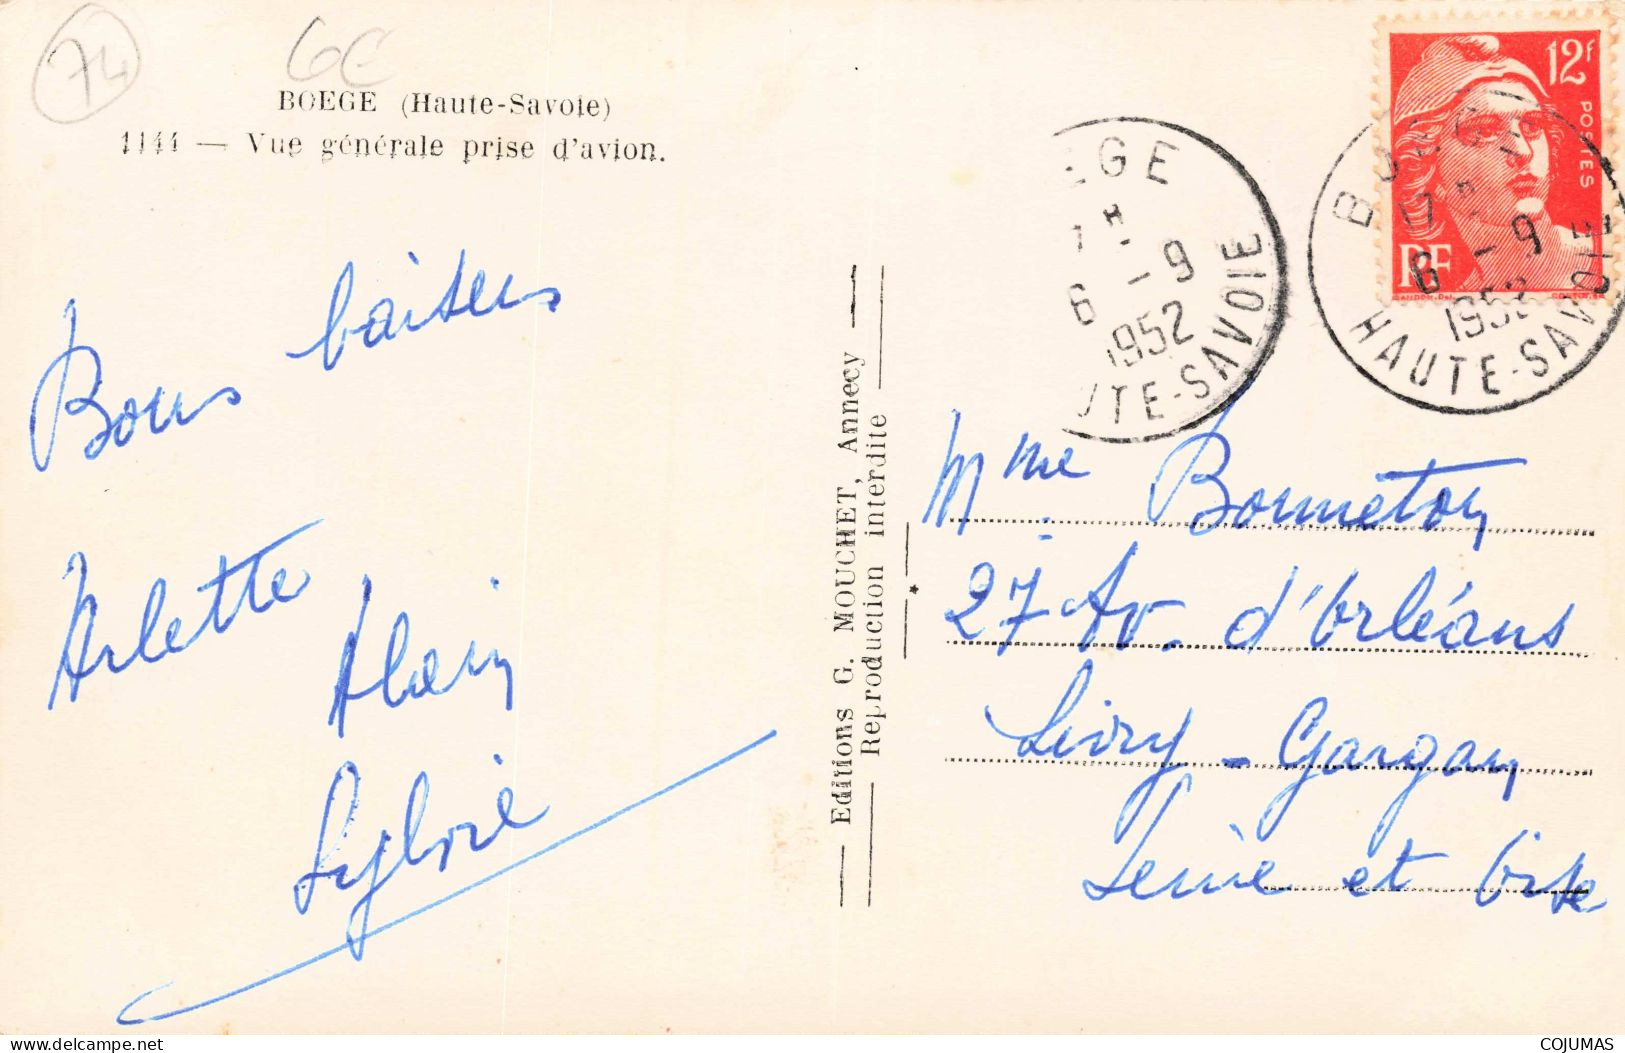 74
6€
BOEGE (Haute-Savoie)
1144 — Vue générale prise d'avion.
Bons baisers
Arlette
Alain
Sylvie
Editions G. MOUCHET, Annecy
Reproduction interdite
EGE
6 -9
1952
UTE-SAVOIE
12F
POSTES
RF
BOEGE
17H
6 -9
1952
HAUTE-SAVOIE
Mme Bonneton
27 Av. d'Orléans
Livry-Gargan
Seine et Oise
delcampe.net
COJUMAS